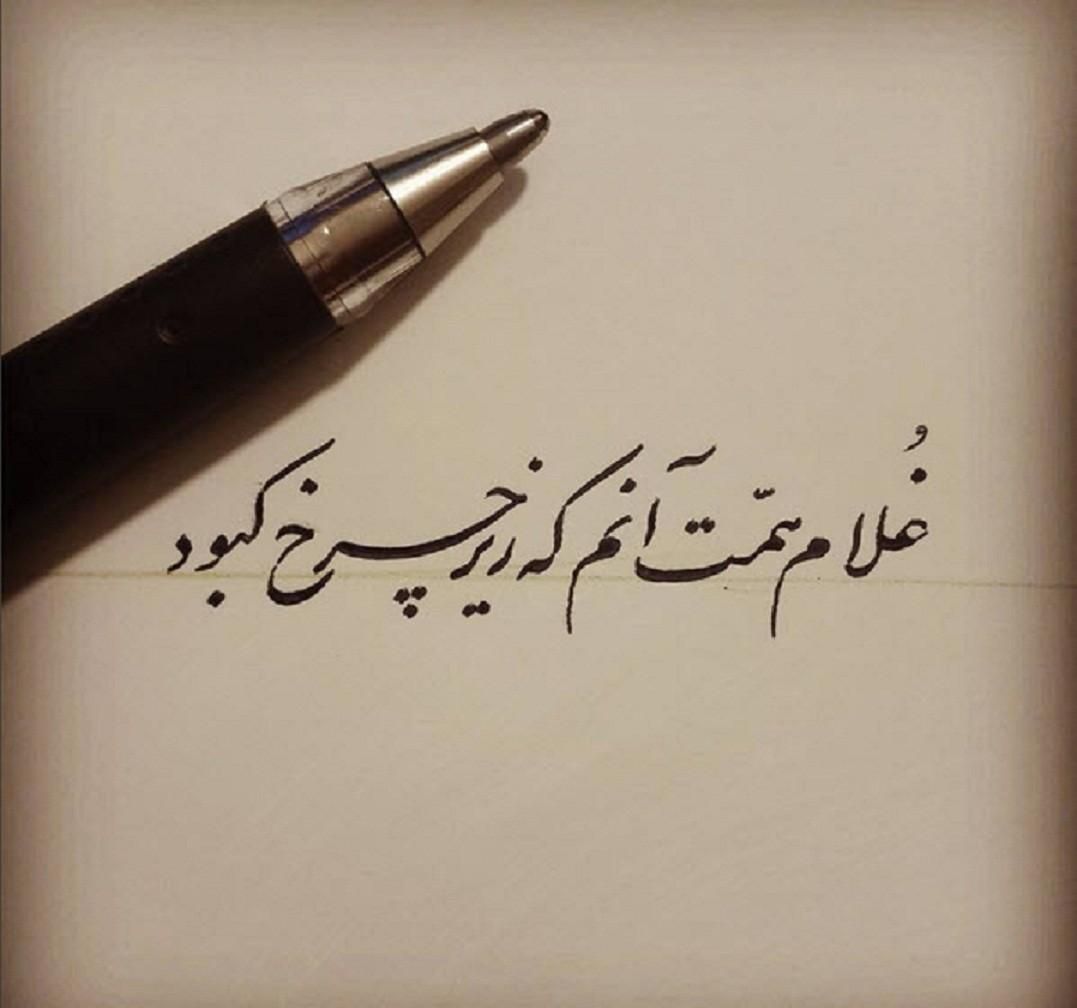 غُلام همّت آنم که زیر چرخ کبود